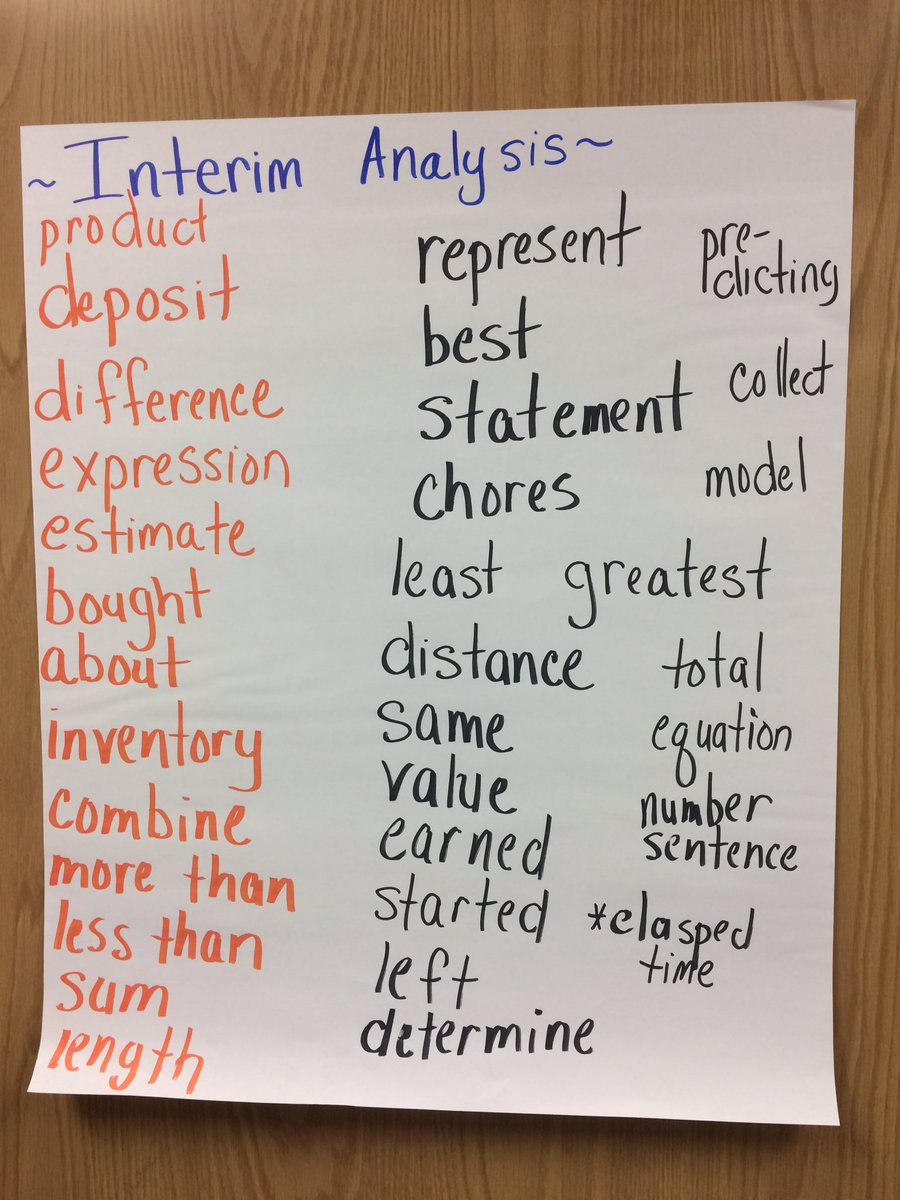 ~Interim Analysis~
product
deposit
difference
expression
estimate
bought
about
inventory
combine
more than
less than
sum
length
represent
best
statement
chores
least
distance
same
value
earned
started
left
determine
pre-
dicting
collect
model
greatest
total
equation
number
sentence
*clasped
time